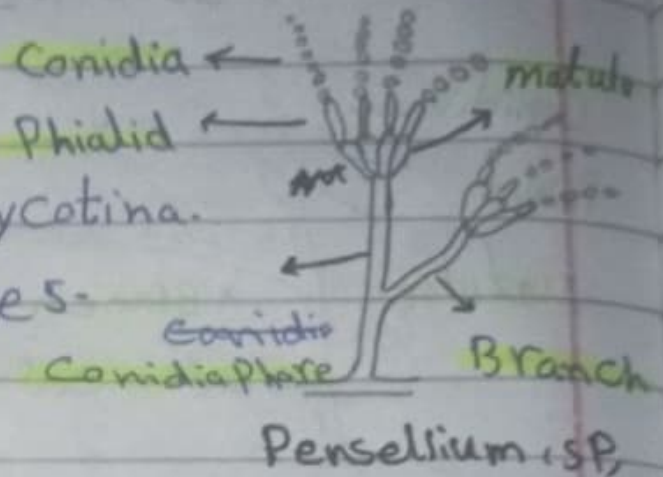 Conidia
metula
Phialid
ycotina.
es.
Conidia
Conidiaphore
Branch
Pensellium, SP,